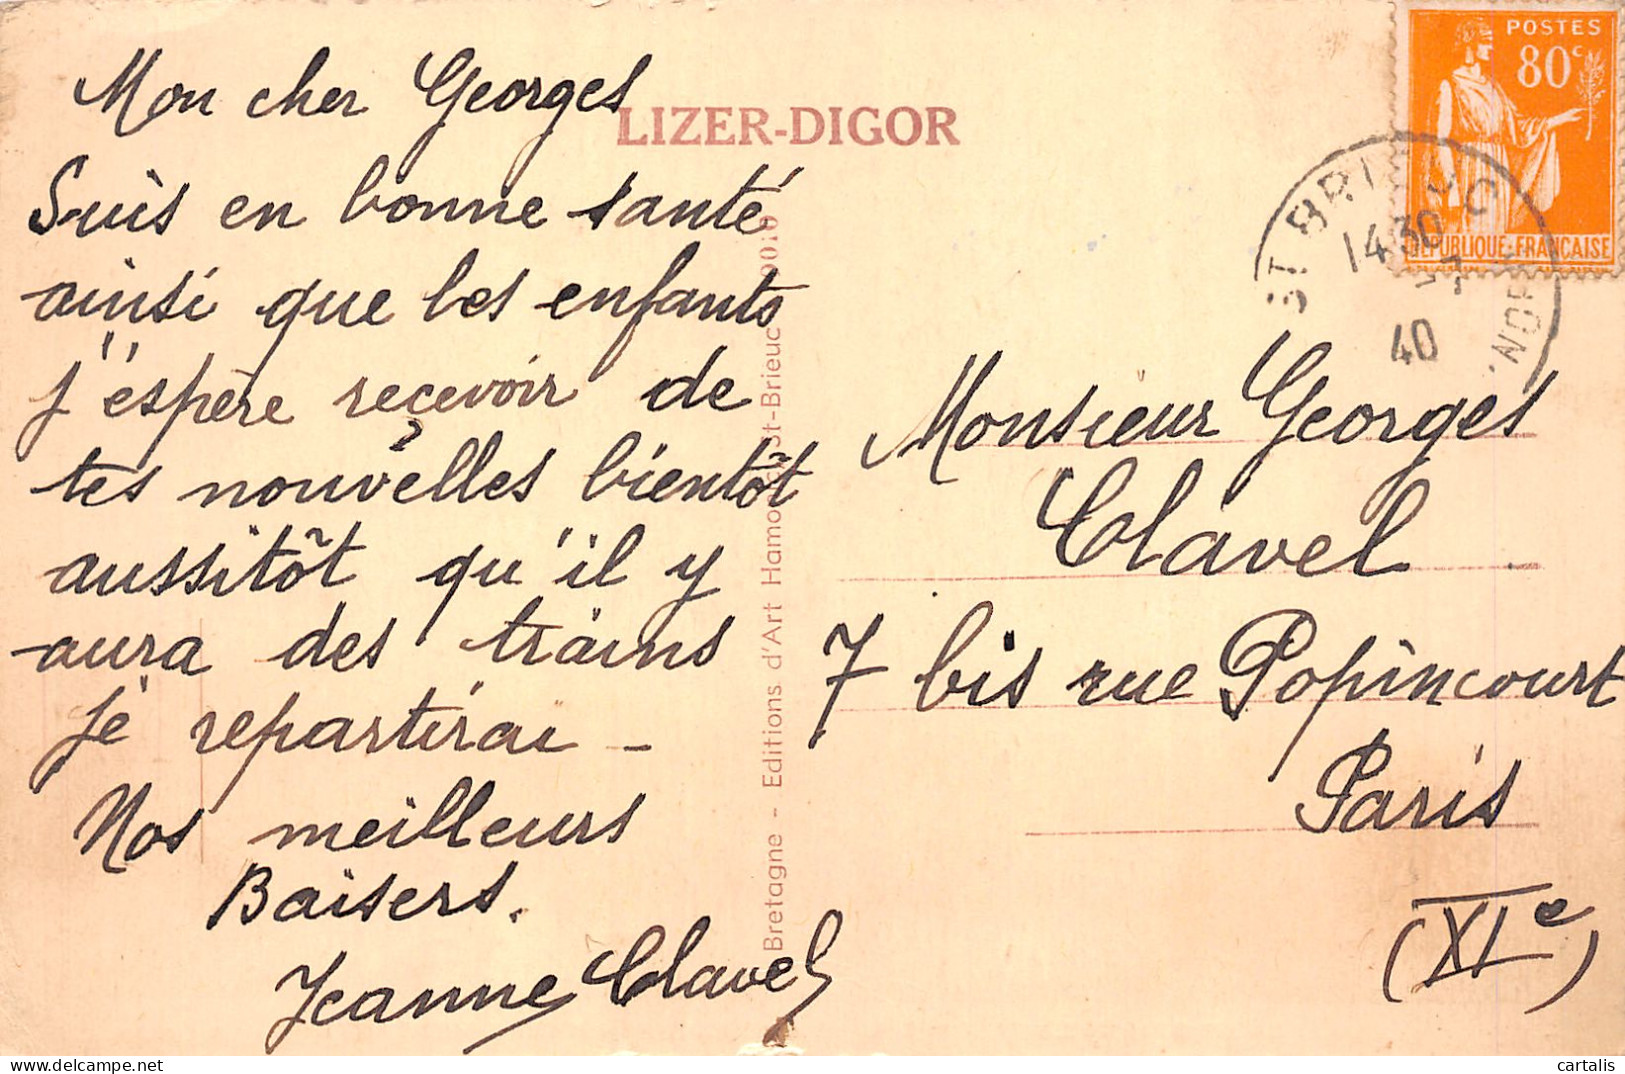 Mon cher Georges
LIZER-DIGOR
Suis en bonne santé
ainsi que les enfants
j'éspère reçevoir de
tes nouvelles bientôt
aussitôt qu'il y
aura des trains
je repartirai -
Nos meilleurs
Baisers.
Jeanne Clavel
Bretagne - Editions d'Art Hamonic St-Brieuc
POSTES
80c
REPUBLIQUE-FRANÇAISE
ST BRIEUC
14 30
40
Monsieur Georges
Clavel
7 bis rue Popincourt
Paris
(XIe)
cartalis